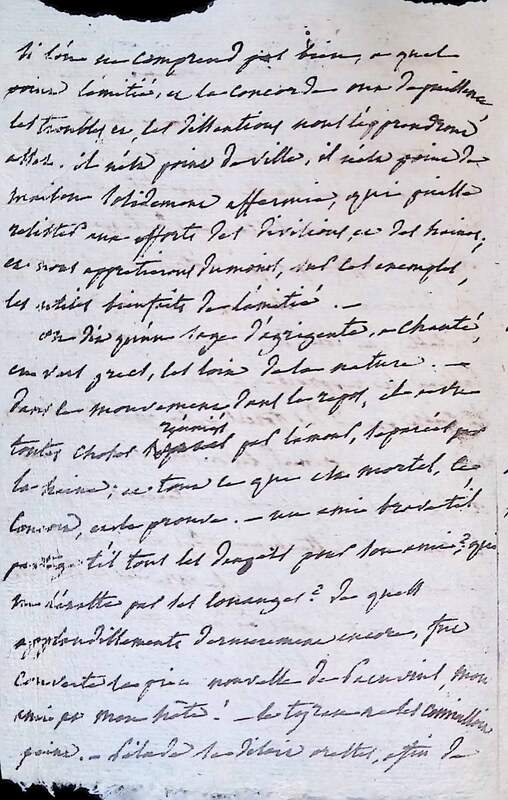 Si l'on ne comprend pas bien, a quel
point l'amitié, et la concorde ont de puissance
les troubles et, les dissentions nous l'apprendront
assez. il n'est point de ville, il n'est point de
maison solidement affermie, qui puisse
resister aux efforts des divisions, et des haines;
et nous apprecierons du moins, sur ces exemples,
les utiles bienfaits de l'amitié. —
on dit qu'un sage d'agrigente, a chanté,
en vers grecs, les loix de la nature. —
dans le mouvement, dans le repos, il
toutes choses réunies par l'amour, separées par
la haine; et tous ce que est mortel, le
conçoit, et le prouve. — un ami brave t'il
partage t'il tous les dangers pour son ami? qui
ne l'exalte par ses louanges? de quels
applaudissements dernierement encore, fut
couverte la piece nouvelle de Pacuvius, mon
ami et mon hôte! — le tyran ne les connaissait
point. — Pilade se disait orestes, afin de